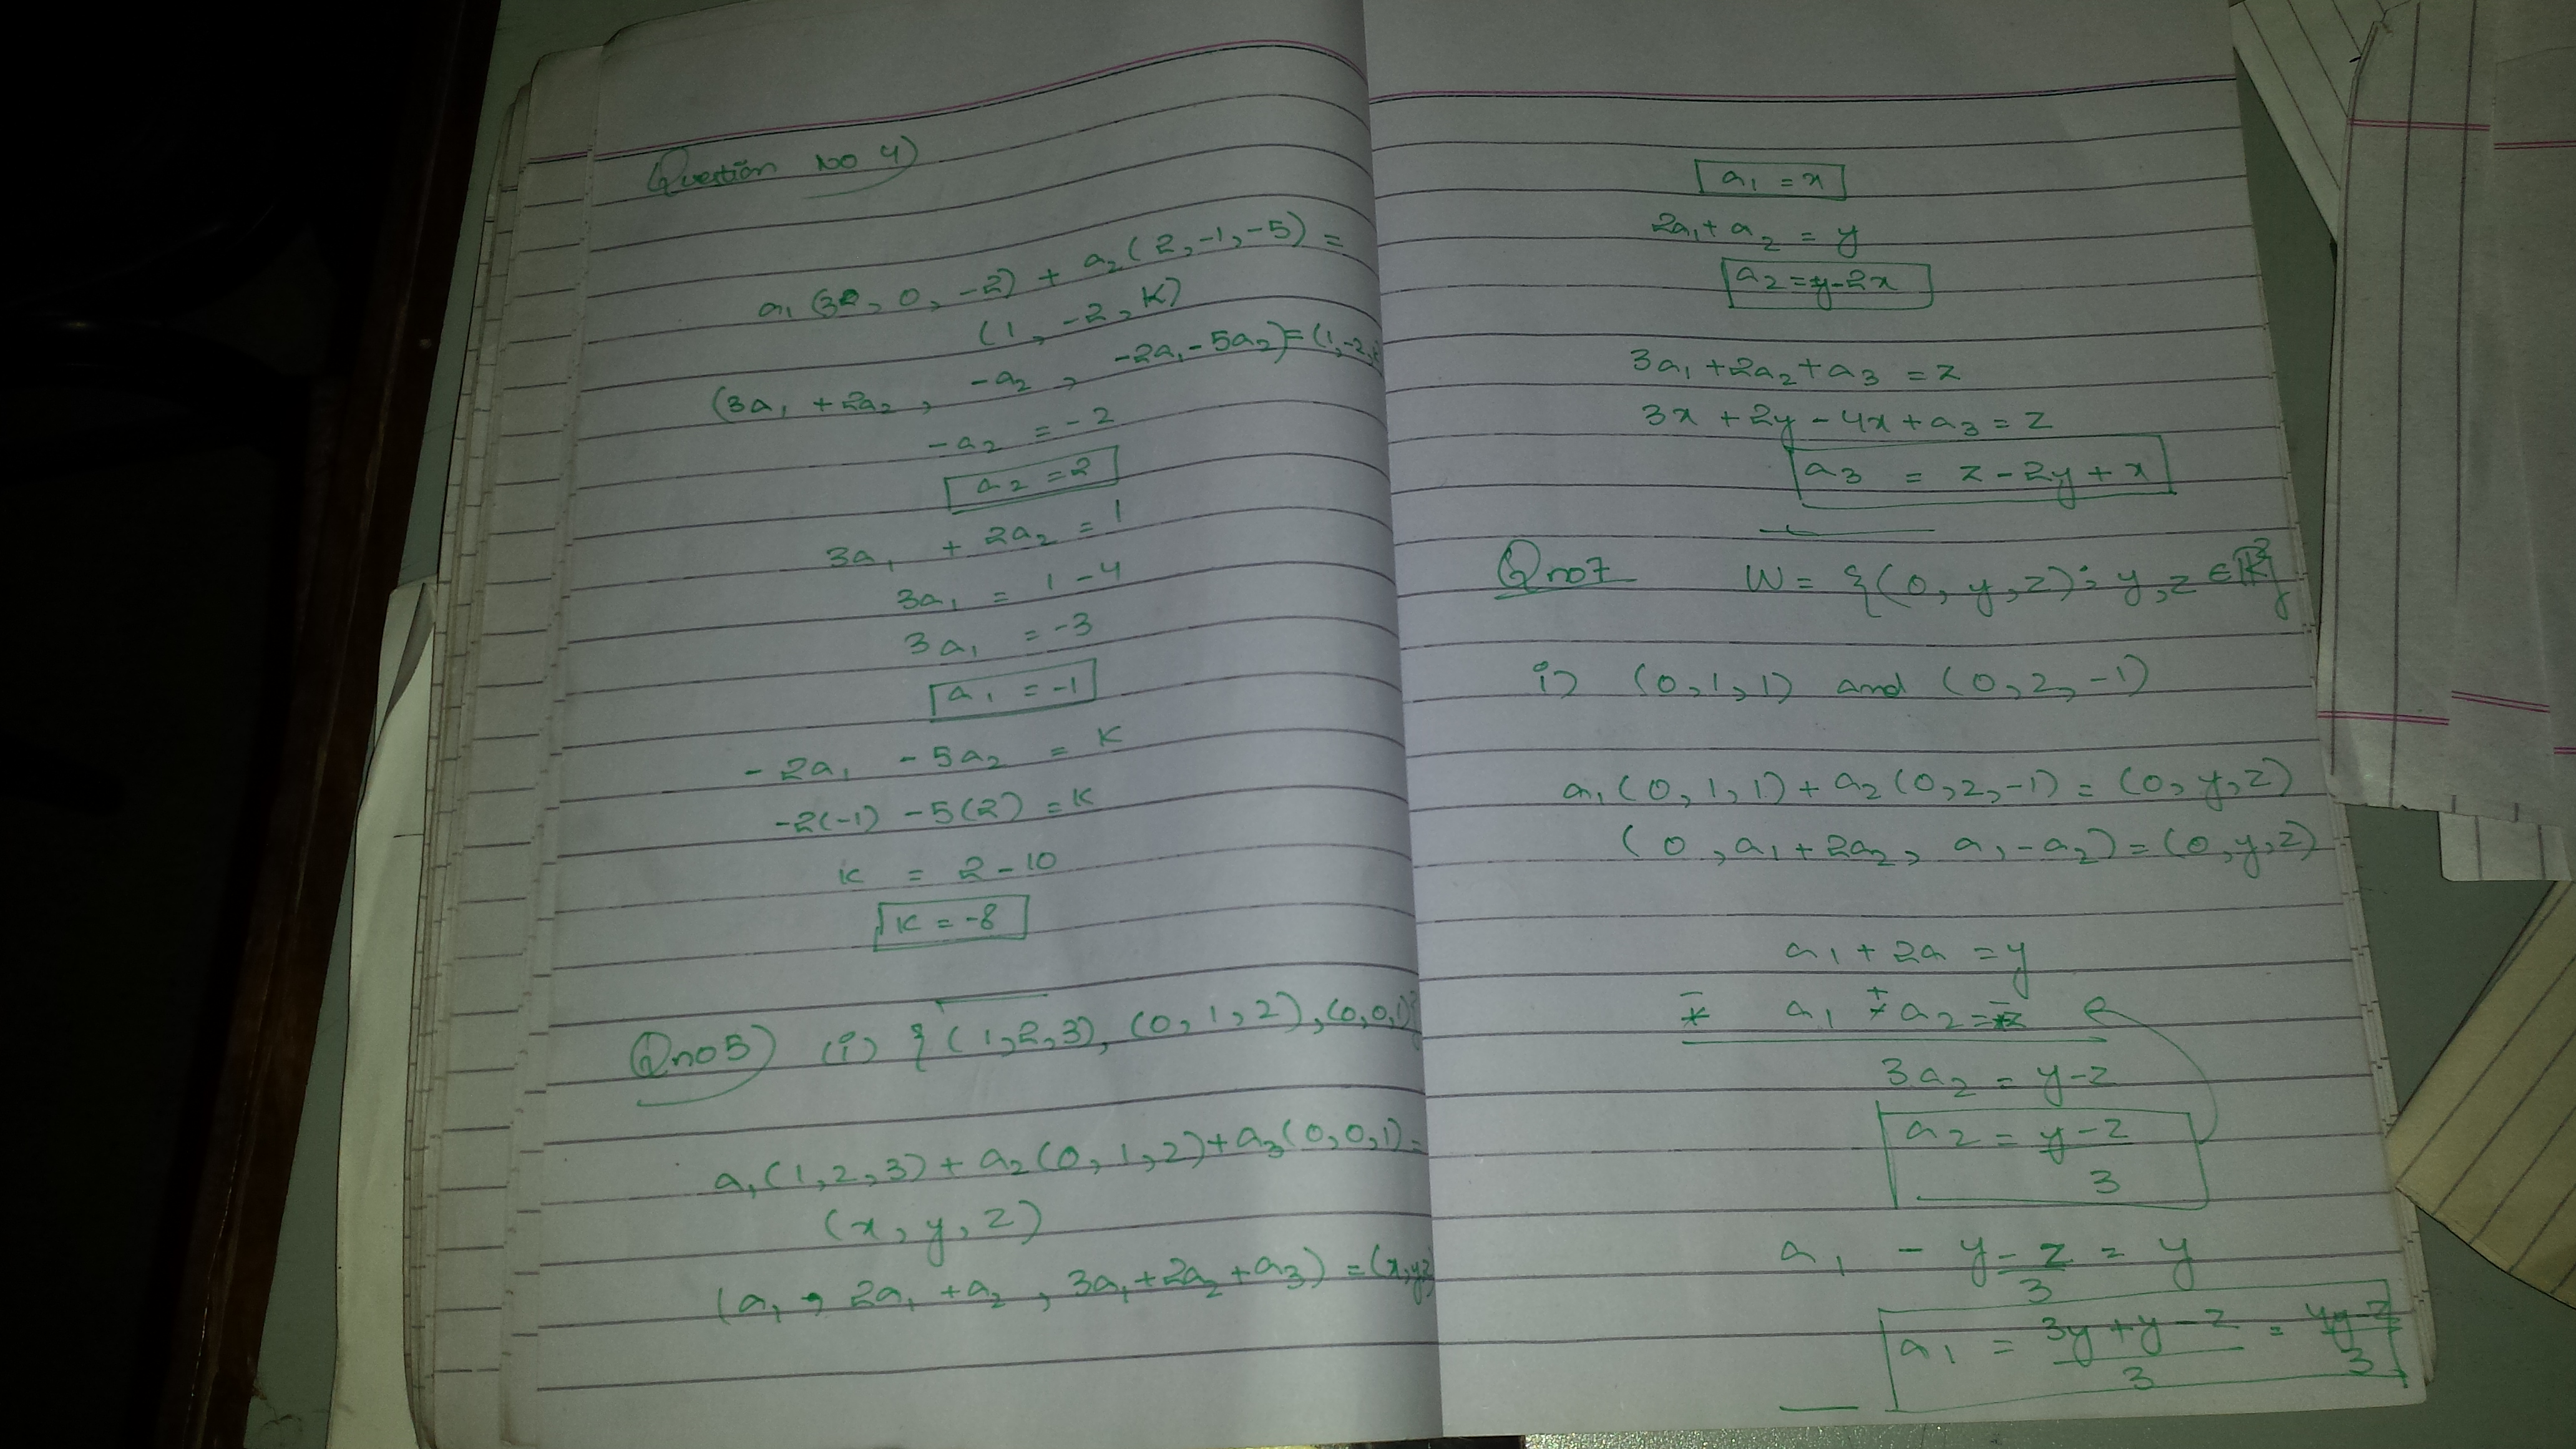 Question No 4)
a₁ (3, 0, -2) + a₂ (2, -1, -5) =
(1, -2, K)
(3a₁ + 2a₂, -a₂, -2a₁ - 5a₂) = (1, -2,
-a₂ = -2
a₂ = 2
3a₁ + 2a₂ = 1
3a₁ = 1 - 4
3a₁ = -3
a₁ = -1
- 2a₁ - 5a₂ = K
-2(-1) - 5(2) = K
K = 2 - 10
K = -8
Qno5) (i) {(1,2,3), (0,1,2), (0,0,1)}
a₁(1,2,3) + a₂(0,1,2) + a₃(0,0,1) =
(x, y, z)
(a₁, 2a₁ + a₂, 3a₁ + 2a₂ + a₃) = (x,y,z)
a₁ = x
2a₁ + a₂ = y
a₂ = y-2x
3a₁ + 2a₂ + a₃ = z
3x + 2y - 4x + a₃ = z
a₃ = z - 2y + x
Qno7 W = {(0, y, z) : y, z ∈ R}
i) (0,1,1) and (0,2,-1)
a₁(0,1,1) + a₂(0,2,-1) = (0,y,z)
(0, a₁ + 2a₂, a₁ - a₂) = (0,y,z)
a₁ + 2a = y
a₁ - a₂ = z
3a₂ = y-z
a₂ = y-z/3
a₁ - y-z/3 = y
a₁ = 3y+y-z/3 = 4y-z/3